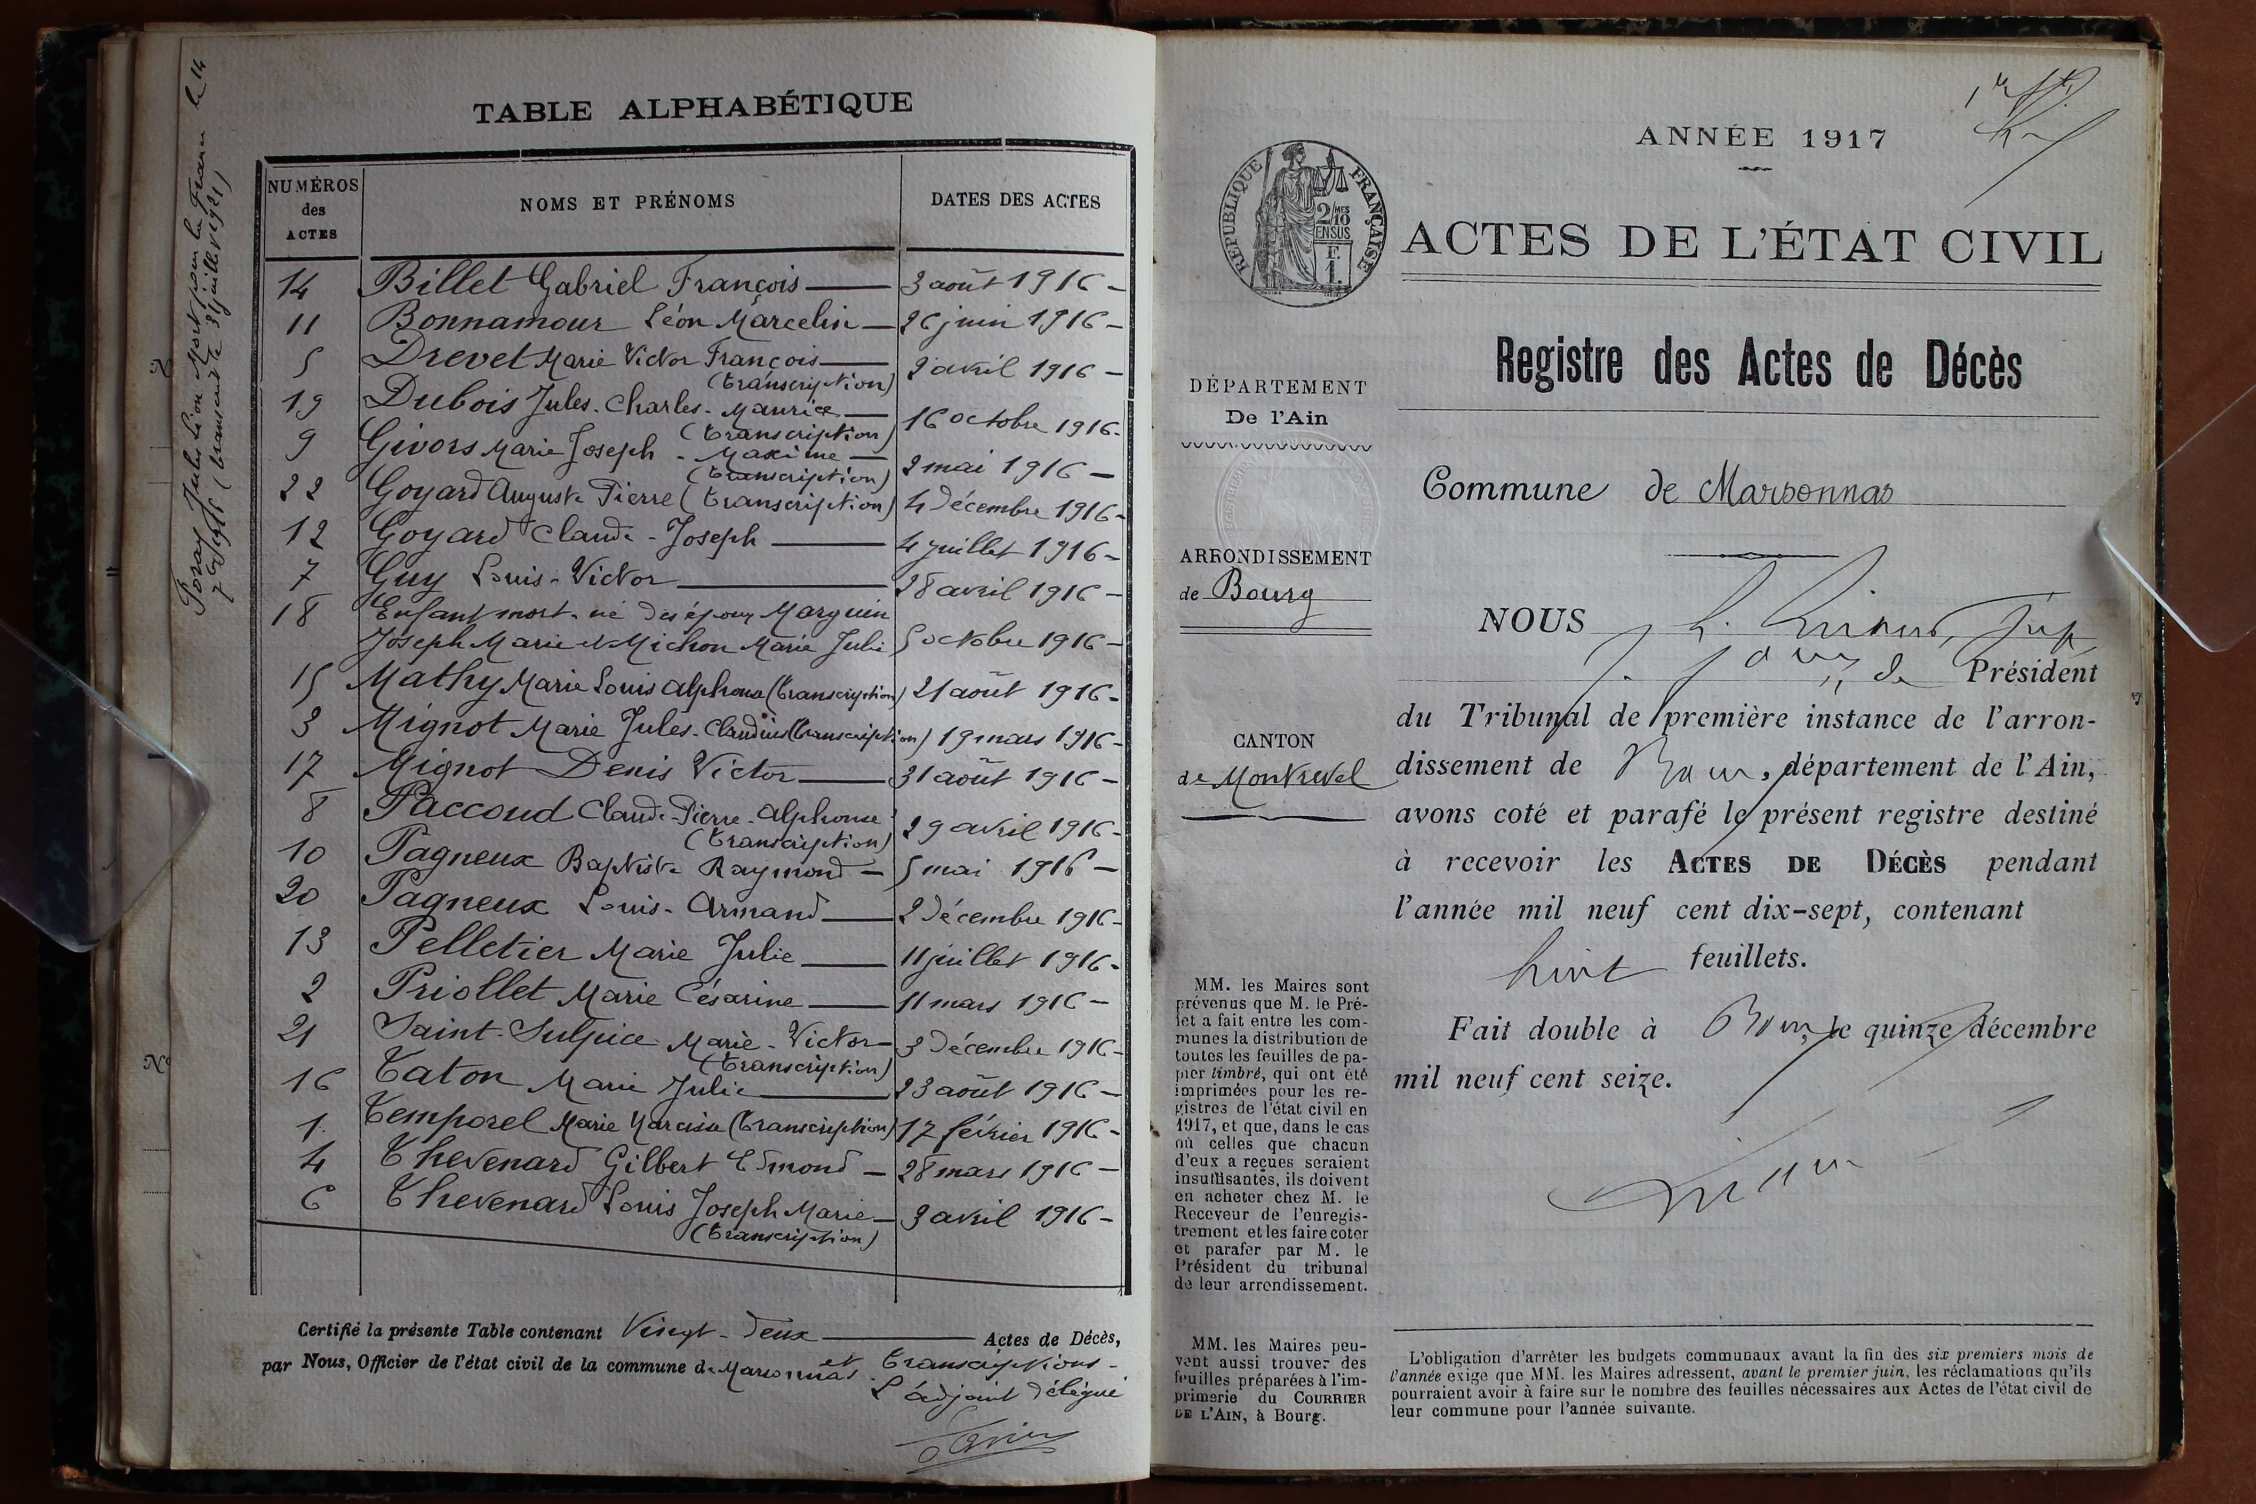 TABLE ALPHABÉTIQUE
NUMÉROS des ACTES
NOMS ET PRÉNOMS
DATES DES ACTES
14 Billet Gabriel François 3 août 1916
11 Bonnamour Léon Marcelin 26 juin 1916
5 Drevet Marie Victor François (transcription) 2 avril 1916
19 Dubois Jules-Charles-Maurice (transcription) 16 octobre 1916
9 Givors Marie Joseph-Maxime (transcription) 2 mai 1916
22 Goyard Auguste Pierre (transcription) 4 décembre 1916
12 Goyard Claude-Joseph 4 juillet 1916
7 Guy Louis-Victor 28 avril 1916
18 Enfant mort-né des époux Marguin
Joseph Marie et Michon Marie Julie 5 octobre 1916
15 Mathy Marie Louis Alphonse (transcription) 21 août 1916
3 Mignot Marie Jules-Claudius (transcription) 19 mars 1916
17 Mignot Denis Victor 31 août 1916
8 Paccoud Claude-Pierre-Alphonse (transcription) 29 avril 1916
10 Pagneux Baptiste Raymond 5 mai 1916
20 Pagneux Louis-Armand 2 décembre 1916
13 Pelletier Marie Julie 11 juillet 1916
2 Priollet Marie Césarine 11 mars 1916
21 Saint-Sulpice Marie-Victor (transcription) 3 décembre 1916
16 Taton Marie Julie 23 août 1916
1 Temporel Marie Narcisse (transcription) 17 février 1916
4 Thevenard Gilbert Edmond 28 mars 1916
6 Thevenard Louis Joseph Marie (transcription) 3 avril 1916
Certifié la présente Table contenant Vingt-deux Actes de Décès,
par Nous, Officier de l'état civil de la commune de Marsonnas et transcriptions
L'adjoint délégué
Jules Léon Mort pour la France le 14
7bre 1916 (transcrit le 31 juillet 1921)
ANNÉE 1917
RÉPUBLIQUE FRANÇAISE
2/10 MES
EN SUS
F.
1.
ACTES DE L'ÉTAT CIVIL
Registre des Actes de Décès
DÉPARTEMENT
De l'Ain
Commune de Marsonnas
ARRONDISSEMENT
de Bourg
CANTON
de Montrevel
NOUS
Président
du Tribunal de première instance de l'arron-
dissement de Bourg, département de l'Ain,
avons coté et parafé le présent registre destiné
à recevoir les ACTES DE DÉCÈS pendant
l'année mil neuf cent dix-sept, contenant
huit feuillets.
Fait double à Bourg, le quinze décembre
mil neuf cent seize.
MM. les Maires sont
prévenus que M. le Pré-
fet a fait entre les com-
munes la distribution de
toutes les feuilles de pa-
pier timbré, qui ont été
imprimées pour les re-
gistres de l'état civil en
1917, et que, dans le cas
où celles que chacun
d'eux a reçues seraient
insuffisantes, ils doivent
en acheter chez M. le
Receveur de l'enregis-
trement et les faire coter
et parafer par M. le
Président du tribunal
de leur arrondissement.
MM. les Maires peu-
vent aussi trouver des
feuilles préparées à l'im-
primerie du COURRIER
DE L'AIN, à Bourg.
L'obligation d'arrêter les budgets communaux avant la fin des six premiers mois de
l'année exige que MM. les Maires adressent, avant le premier juin, les réclamations qu'ils
pourraient avoir à faire sur le nombre des feuilles nécessaires aux Actes de l'état civil de
leur commune pour l'année suivante.